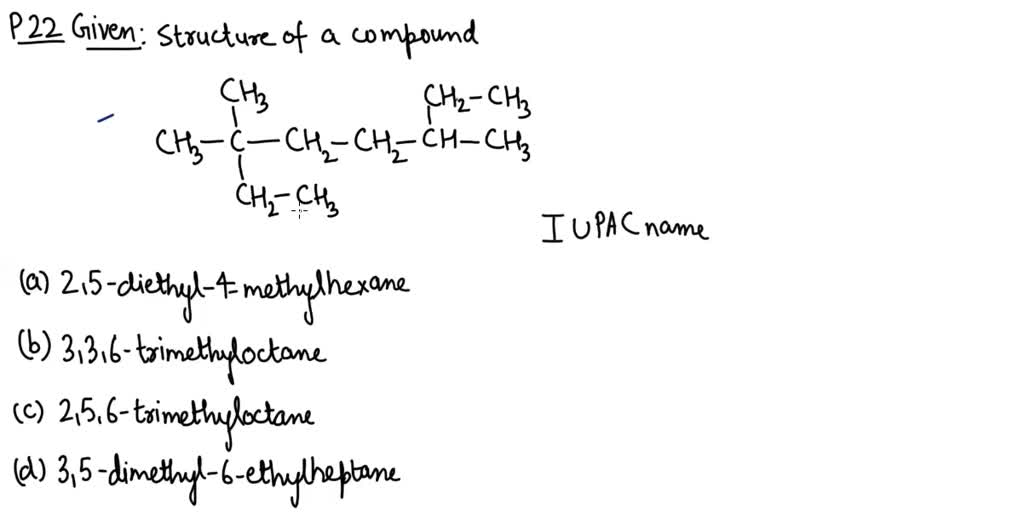 P22 Given: Structure of a compound
CH3 CH2-CH3
CH3-C-CH2-CH2-CH-CH3
CH2-CH3
IUPAC name
(a) 2,5-diethyl-4-methylhexane
(b) 3,3,6-trimethyloctane
(c) 2,5,6-trimethyloctane
(d) 3,5-dimethyl-6-ethylheptane